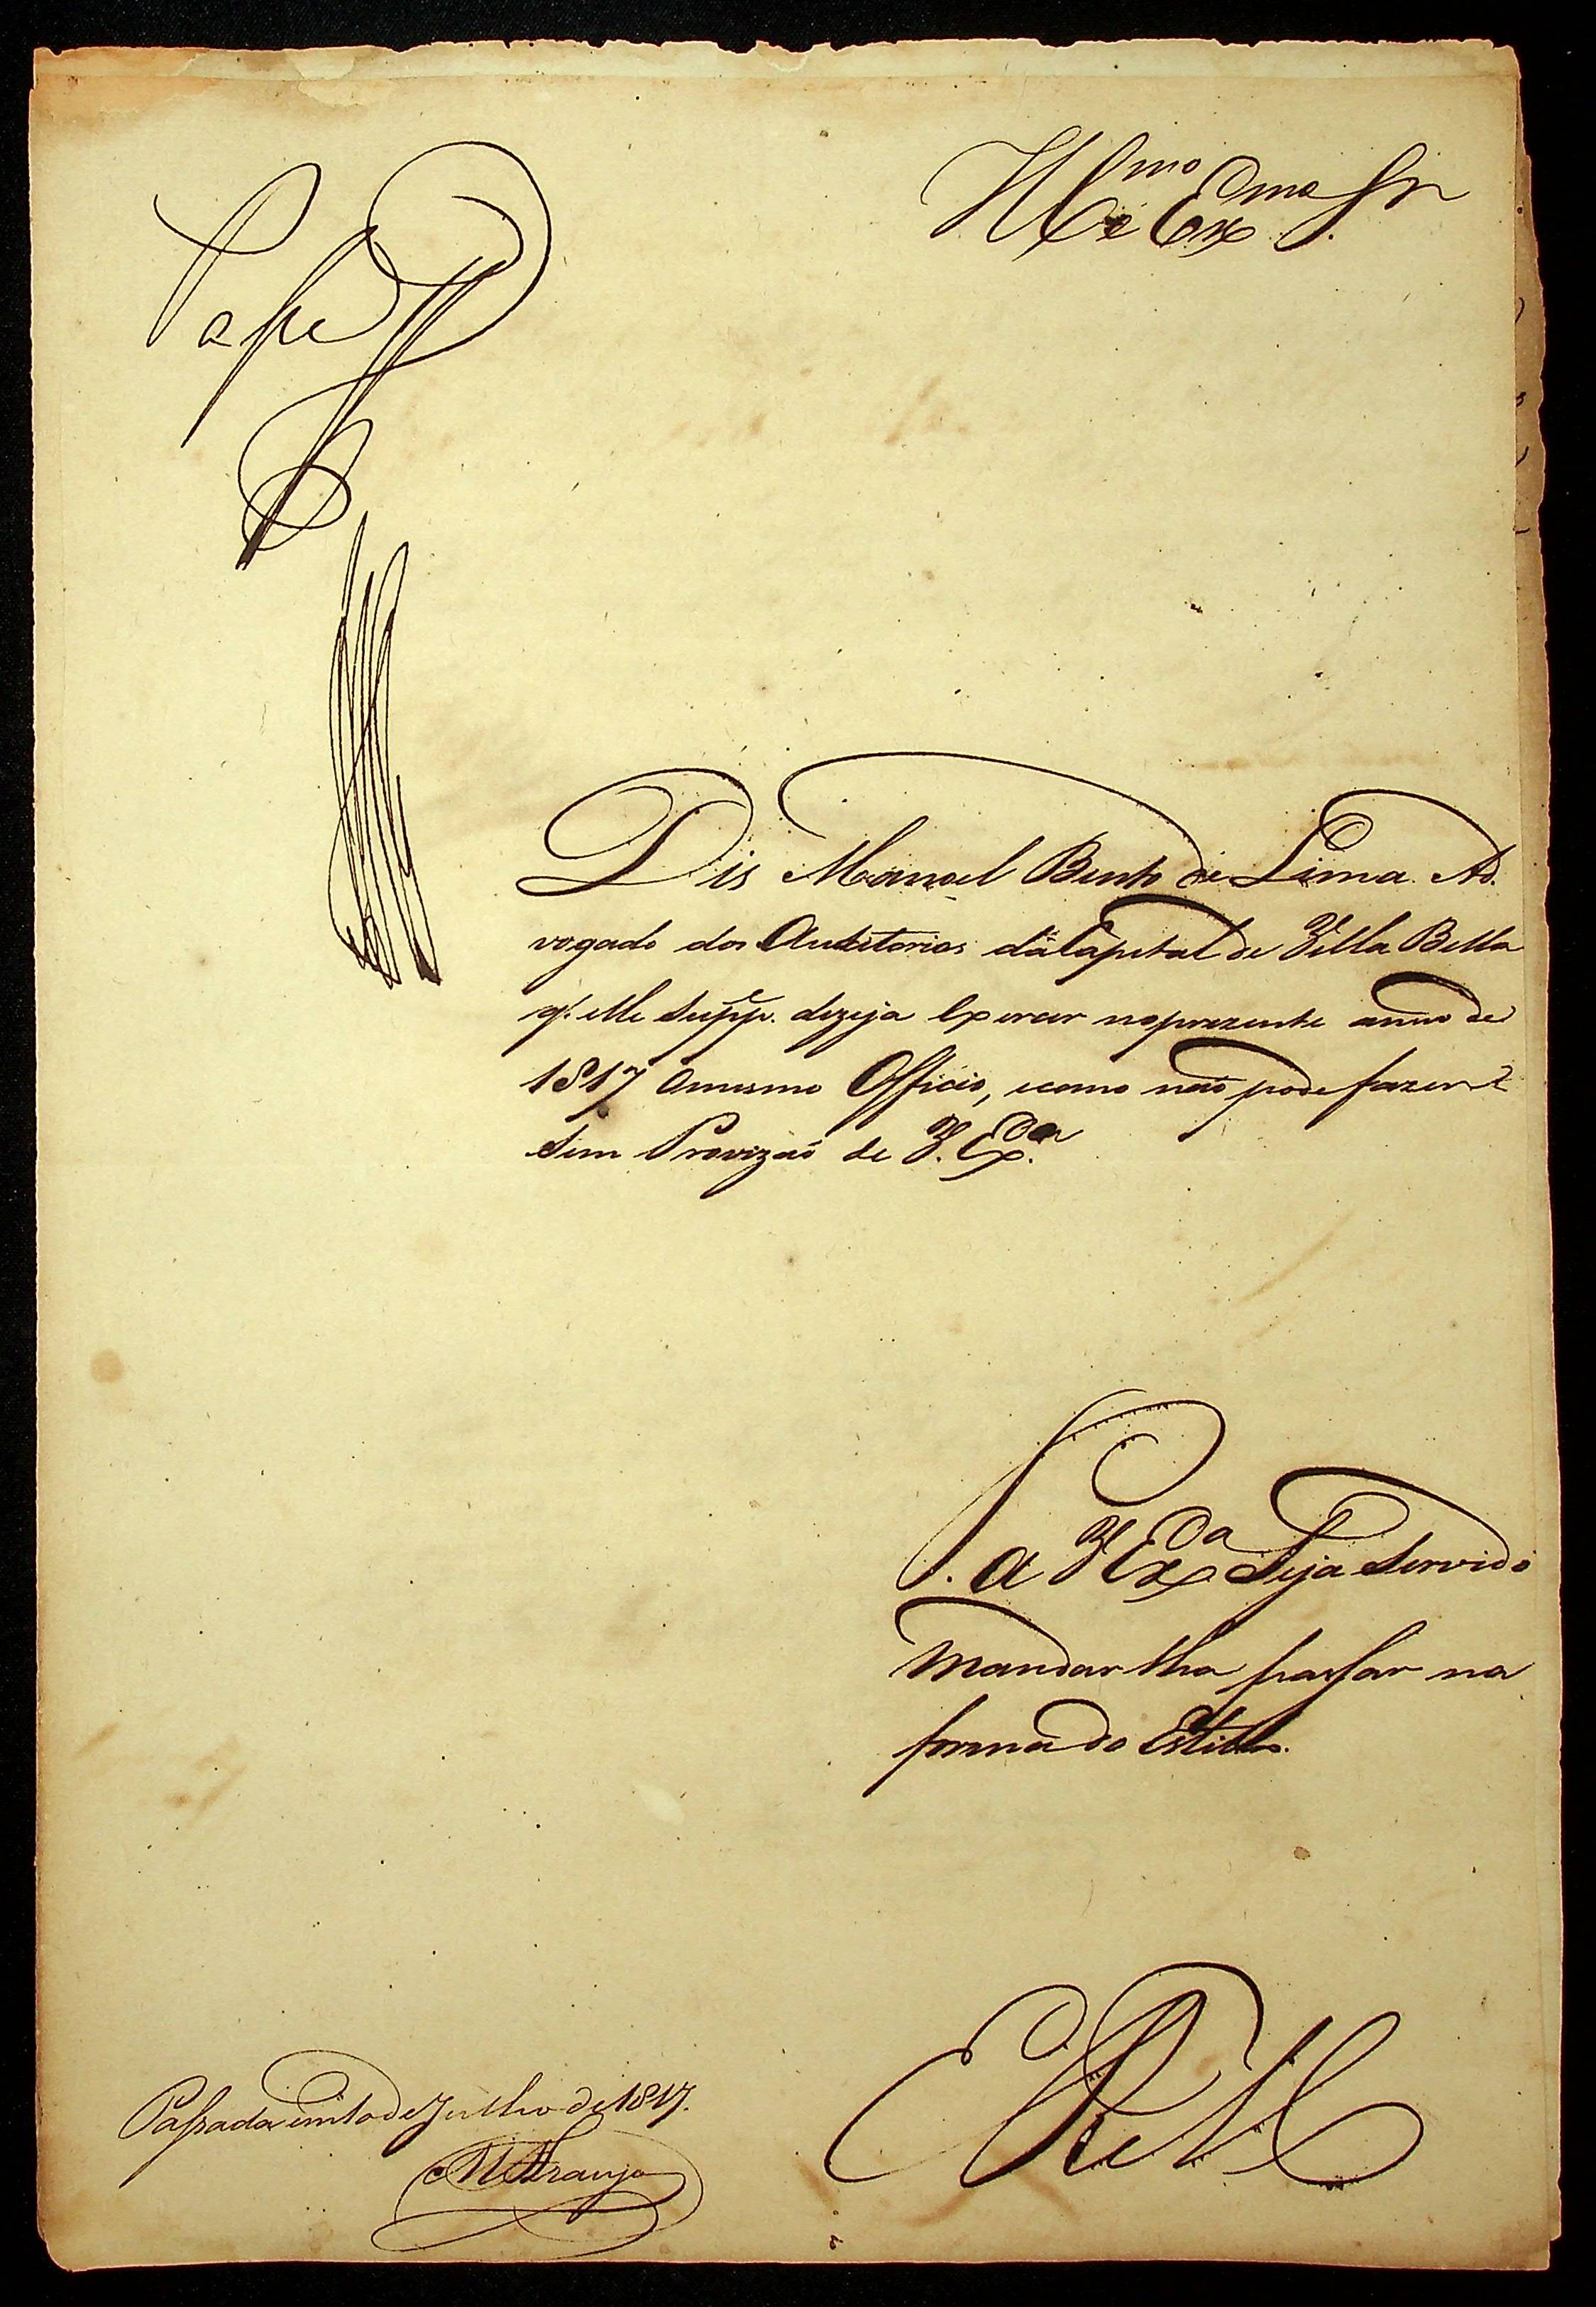 Ill.mo e Ex.mo Sr.
Passe
Dis Manoel Bento de Lima Ad-
vogado dos Auditorios da Capital de Villa Bella
q. elle Supp.e dezeja Exercer no prezente anno de
1817 Omesmo Officio, ecomo naõ pode fazer
Sem Provizaõ de V. Ex.a
P. a V Ex.a Seja Servido
mandar lha passar na
forma do Estillo.
E R M.ce
Passada em 10 de Julho de 1817.
Araujo